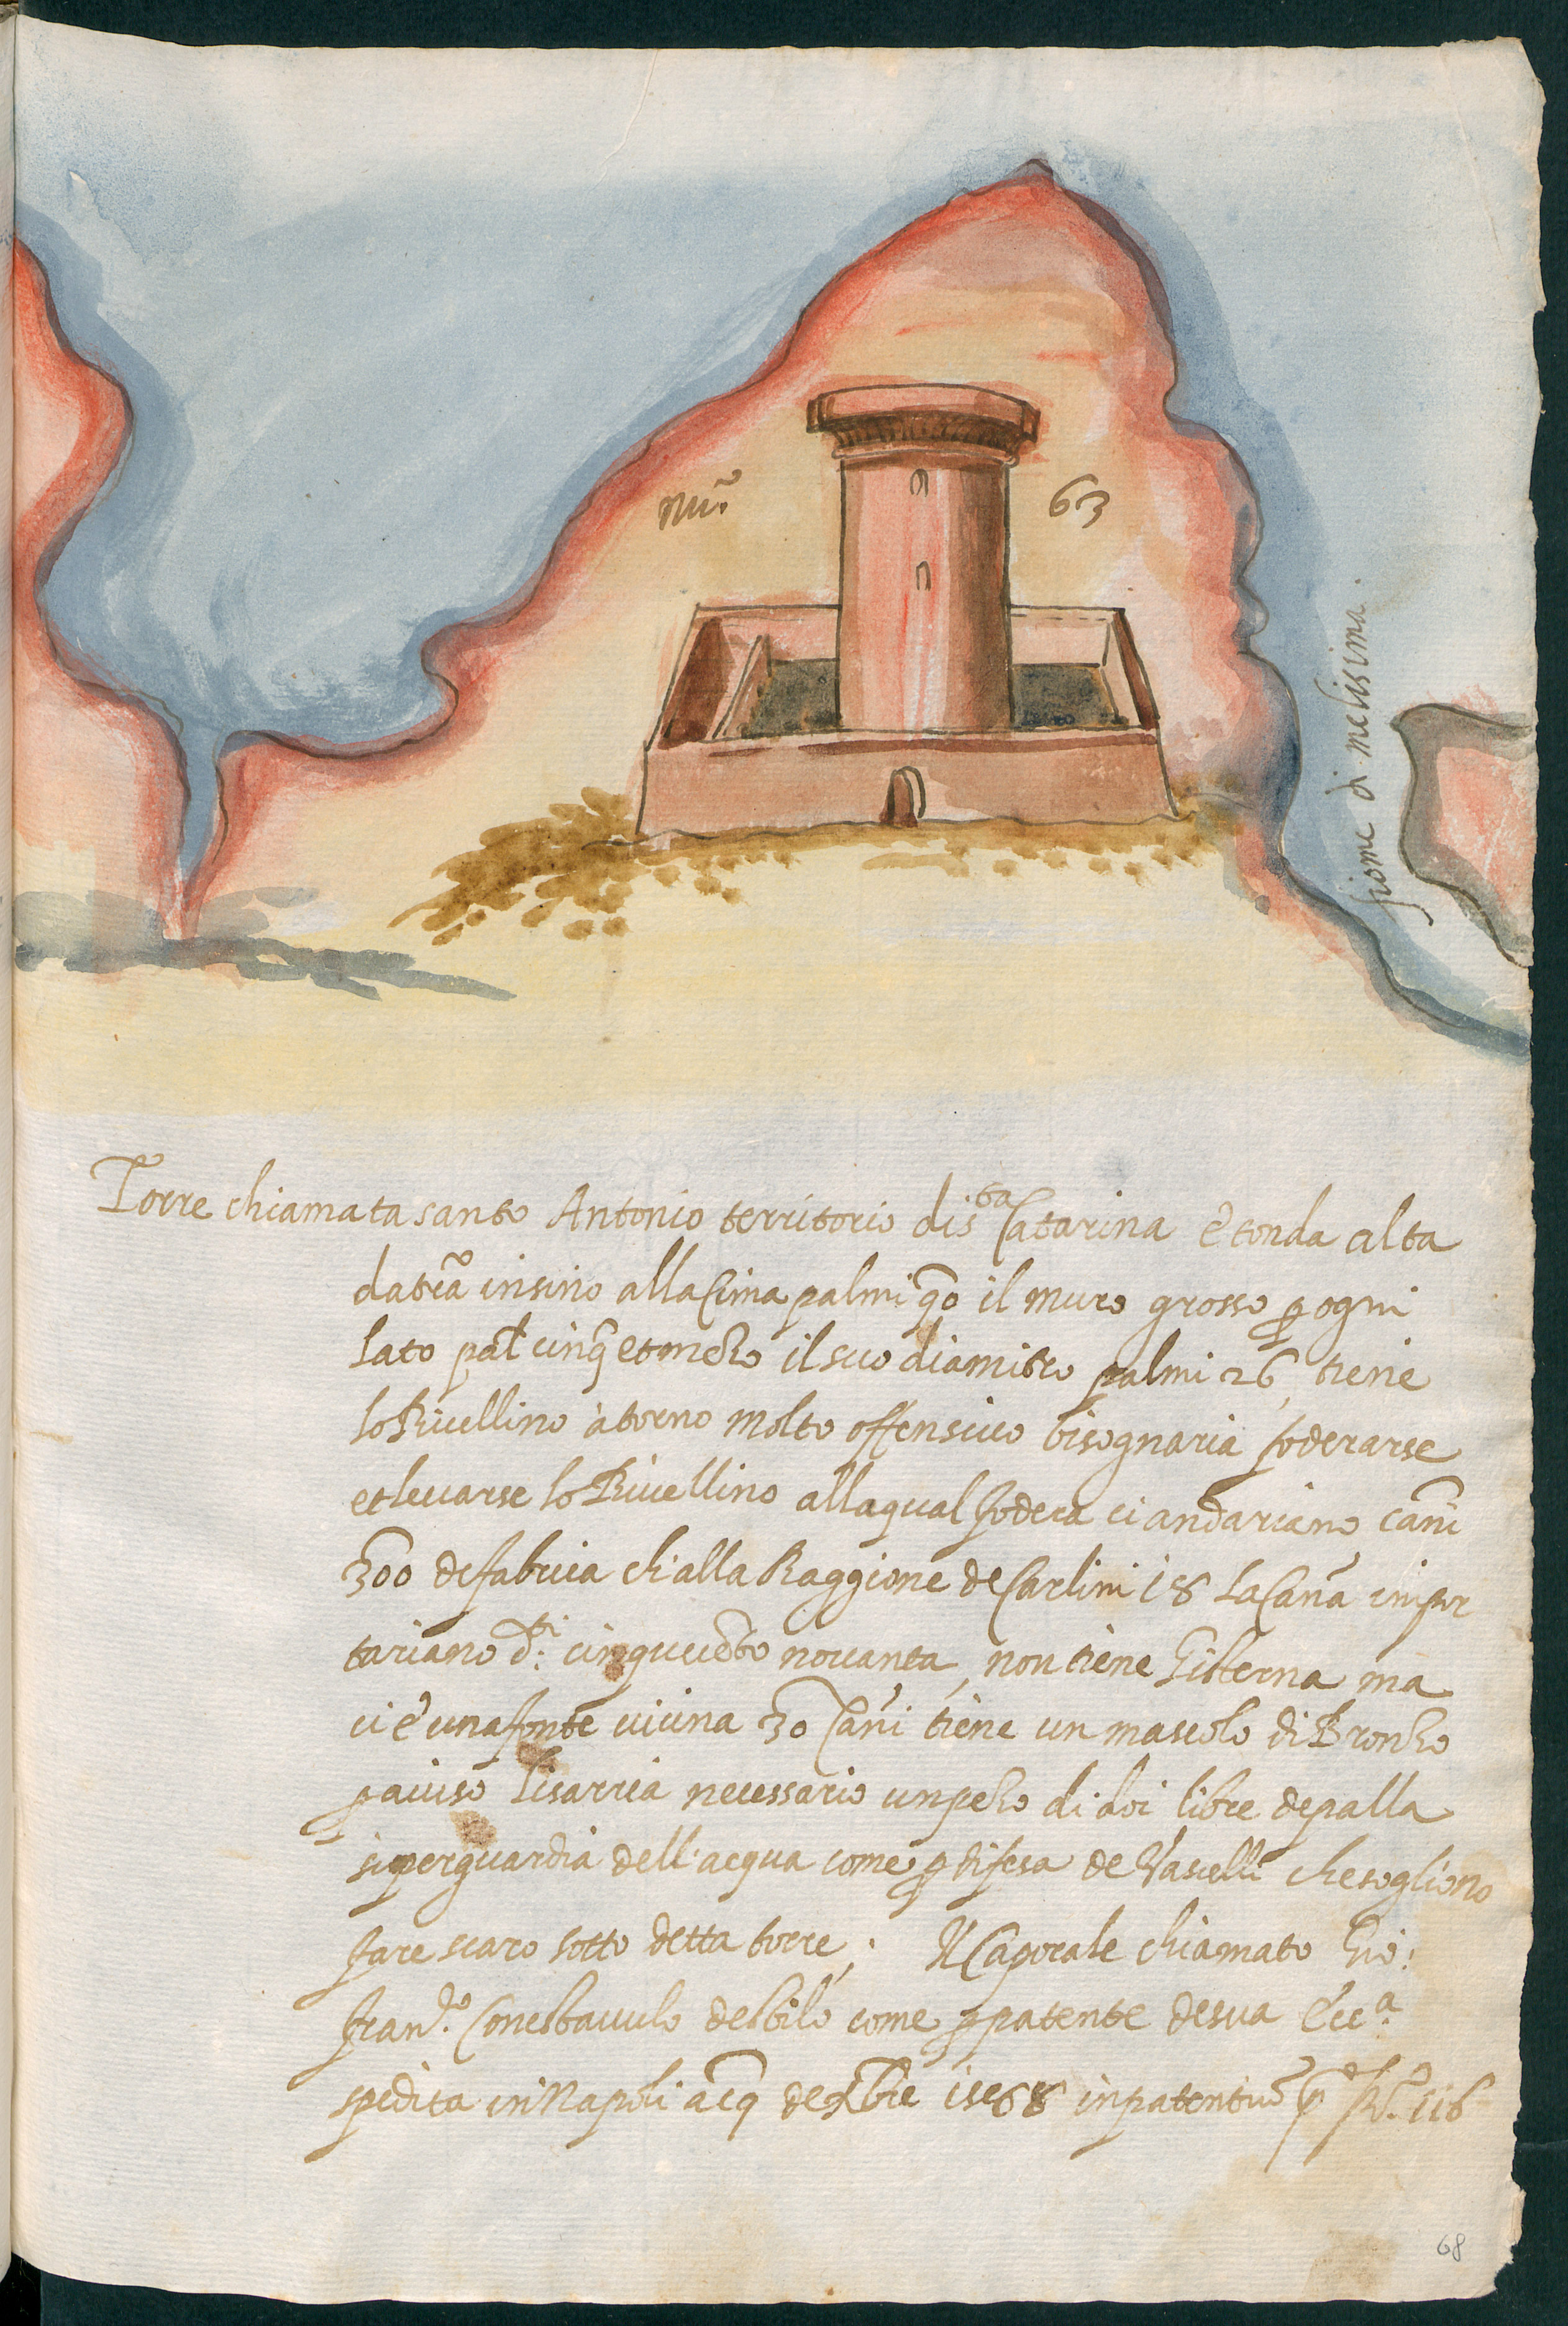 nu.º 63
fiome di melissima.
Torre chiamata santo Antonio territorio di s.ta Catarina è tonda alta
da trã insino alla Cima palmi 90 il muro grosso ꝑ ogni
lato pal cinq̃ et mezo il suo diamitro palmi 26, tiene
lo Rivellino àtorno molto offensivo bisognaria foderarse
et levarse lo Rivellino alla qual fodera ci andariano cañi
300 de fabrica ch' alla Raggione de Carlini 18 la Cañа impor
tariano d.ti cinquecẽto novanta, non tiene Citterna ma
ci è una fonte vicina 30 Cañi tiene un mascolo di Bronzo
ꝑ aviso li sarria necessario un pezo di doi libre de palla
si per guardia dell'acqua come ꝑ difesa de Vascelli che sogliono
fare scaro sotto detta torre; Il Caporale chiamato Giõ:
Fran.co Conestavulo de Stilo come ꝑ patente de sua Ecc.a
spedita in Napoli a
de Xbre
in patentiũ
fol. 116
68